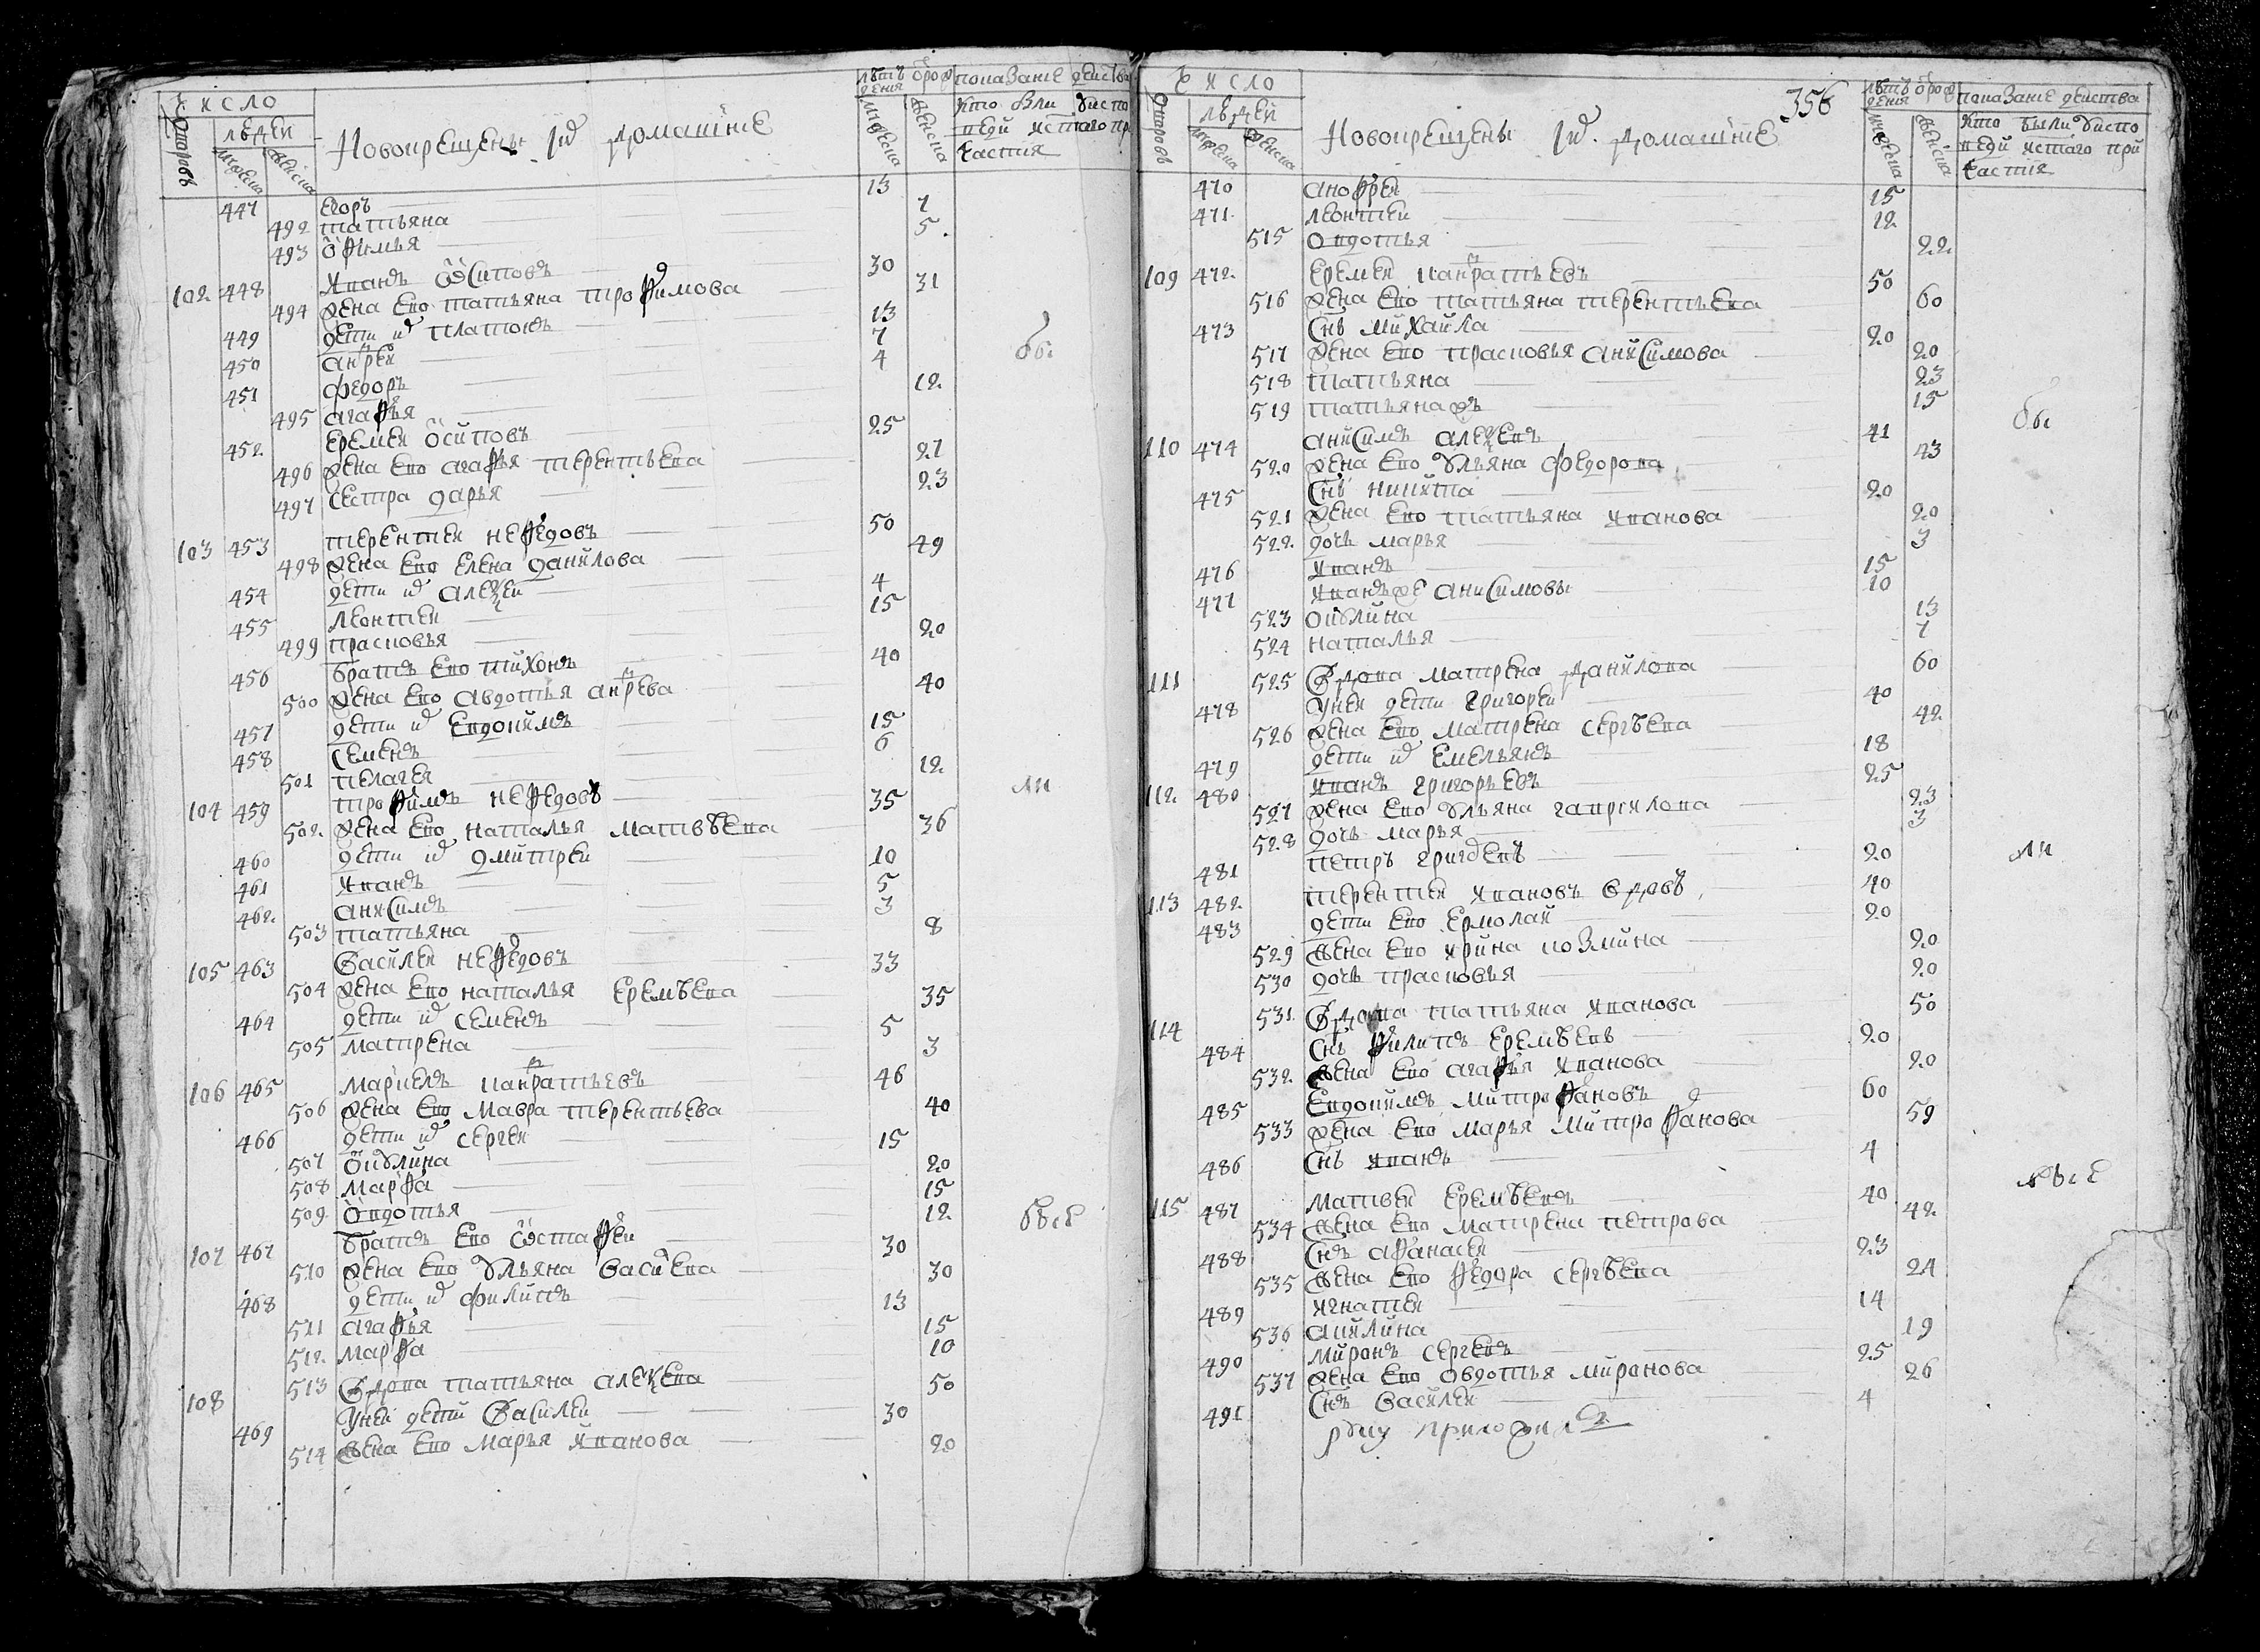 Число
Дворовъ
людей
мужеска
женска
Новокрещены и их домашние
лѣтъ от рождения
мужеска
женска
показание действа
кто были у исповеди и святаго причастия
447 Егоръ 13
492 татьяна 7
493 офимья 5
102 448 иванъ осиповъ 30
494 жена ево татьяна трофимова 31
449 дети их платонъ 13
450 андреи 7
451 федоръ 4
495 агафья 12
452 еремеи осиповъ 25
496 жена ево агафья терентьева 27
497 сестра дарья 23
103 453 терентеи нефедовъ 50
498 жена ево елена данилова 49
454 дети их алексеи 4
455 леонтеи 15
499 прасковья 20
456 братъ ево тихонъ 40
500 жена ево авдотья андрева 40
457 дети их евдокимъ 15
458 семенъ 6
501 пелагея 12
104 459 трофимъ нефедовъ 35
502 жена ево наталья матвѣева 36
460 дети их дмитреи 10
461 иванъ 5
462 анисимъ 3
503 татьяна 8
105 463 василеи нефедовъ 33
504 жена ево наталья еремѣева 35
464 дети их семенъ 5
505 матрена 3
106 465 маркелъ панкратьевъ 46
506 жена ево мавра терентьева 40
466 дети их сергеи 15
507 акулина 20
508 марфа 15
509 овдотья 12
107 467 братъ ево остафеи 30
510 жена ево ульяна васильева 30
468 дети их филипъ 13
511 агафья 15
512 марфа 10
108 513 вдова татьяна алексева 50
469 у неи дети василеи 30
514 жена ево марья иванова 20
бы
ли
все
356
Число
Дворовъ
людей
мужеска
женска
Новокрещены и их домашние
лѣтъ от рождения
мужеска
женска
показание действа
кто были у исповеди и святаго причастия
470 анофреи 15
471 леонтеи 12
515 овдотья 22
109 472 еремеи панкратьевъ 50
516 жена ево татьяна терентьева 60
473 снъ михаила 20
517 жена ево прасковья анисимова 20
518 татьяна 23
519 татьяна жъ 15
110 474 анисимъ алексеевъ 41
520 жена ево ульяна федорова 43
475 снъ никита 20
521 жена ево татьяна иванова 20
522 дочь марья 3
476 иванъ 15
477 иванъ же анисимовы 10
523 окулина 13
524 наталья 7
111 525 вдова матрена данилова 60
478 у неи дети григореи 40
526 жена ево матрена сергѣева 42
479 дети их емельянъ 18
112 480 иванъ григорьевъ 25
527 жена ево ульяна гаврилова 23
528 дочь марья 3
481 петръ григоревъ 20
113 482 терентеи ивановъ вдовъ 40
483 дети ево ермолаи 20
529 жена ево ирина козмина 20
530 дочь прасковья 20
114 531 вдова татьяна иванова 50
484 снъ филипъ еремѣевъ 20
532 жена ево агафья иванова 20
485 евдокимъ митрофановъ 60
533 жена ево марья митрофанова 59
486 снъ иванъ 4
115 487 матвеи еремѣевъ 40
534 жена ево матрена петрова 42
488 снъ афанасеи 23
535 жена ево федора сергѣева 24
489 игнатеи 14
536 акилина 19
490 миронъ сергевъ 25
537 жена ево овдотья миронова 26
491 снъ василеи 4
руку приложилъ
бы
ли
все